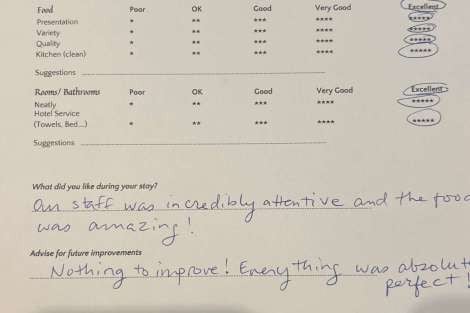 Food Poor OK Good Very Good Excellent
Presentation * ** *** **** *****
Variety * ** *** **** *****
Quality * ** *** **** *****
Kitchen (clean) * ** *** **** *****
Suggestions
Rooms/ Bathrooms Poor OK Good Very Good Excellent
Neatly * ** *** **** *****
Hotel Service
(Towels, Bed...) * ** *** **** *****
Suggestions
What did you like during your stay?
Our staff was incredibly attentive and the food
was amazing!
Advise for future improvements
Nothing to improve! Everything was absolut
perfect!